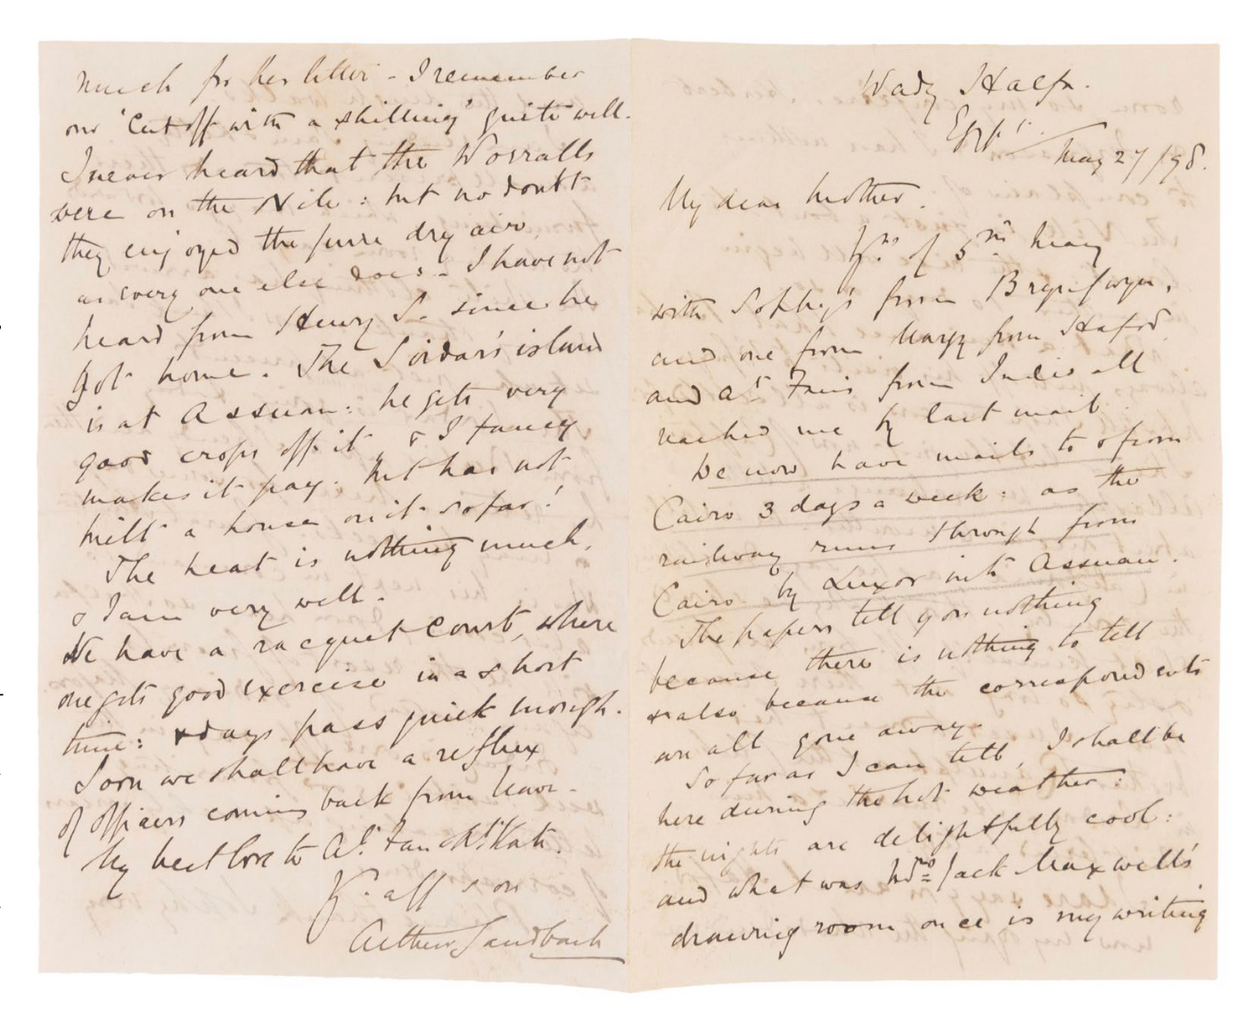 Wady Halfa.
Egypt. May 27/98.
My dear Mother.
Yrs of 5th May
with Sophy's from Bryngwyn,
and one from Mary from Hafod,
and At Fan's from India all
reached me by last mail.
We now have mails to & from
Cairo 3 days a week: as the
railway runs through from
Cairo by Luxor into Assuan.
The papers tell you nothing
because there is nothing to tell
& also because the correspondents
are all gone away.
So far as I can tell, I shall be
here during the hot weather:
the nights are delightfully cool:
and what was Mrs Jack Maxwell's
drawing room once is my writing
much for her letter - I remember
our 'Cut off with a shilling' quite well.
I never heard that the Worralls
were on the Nile: but no doubt
they enjoyed the pure dry air,
as every one else does - I have not
heard from Henry S. since he
got home. The Sirdar's island
is at Assuan: he gets very
good crops off it, & I fancy
makes it pay: but has not
built a house on it so far!
The heat is nothing much,
& I am very well.
We have a racquet court, where
one gets good exercise in a short
time: & days pass quick enough.
Soon we shall have a reflux
of officers coming back from leave.
My best love to At Fan & At Kate.
Yr. aff son
Arthur Sandbach